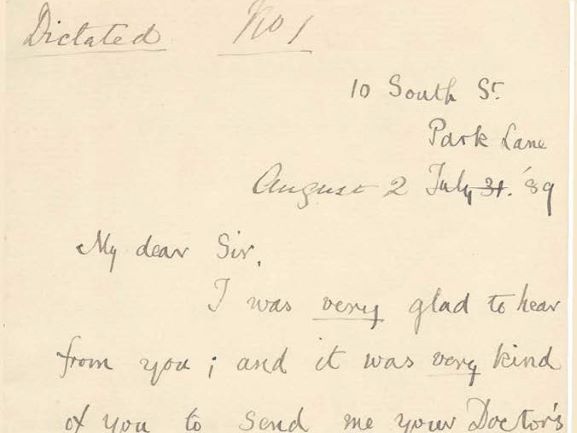 Dictated No 1
10 South St.
Park Lane
August 2 July 31. '89
My dear Sir,
I was very glad to hear
from you; and it was very kind
of you to send me your Doctor's